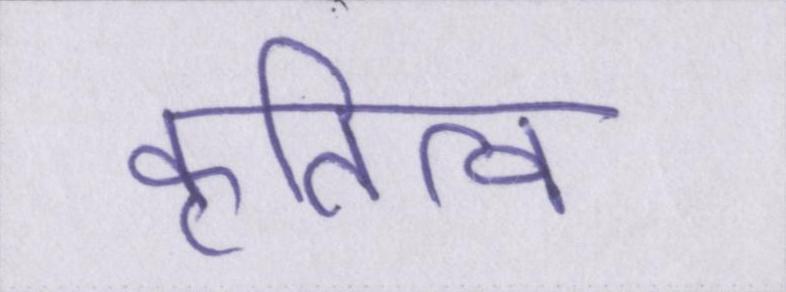 कृतित्व